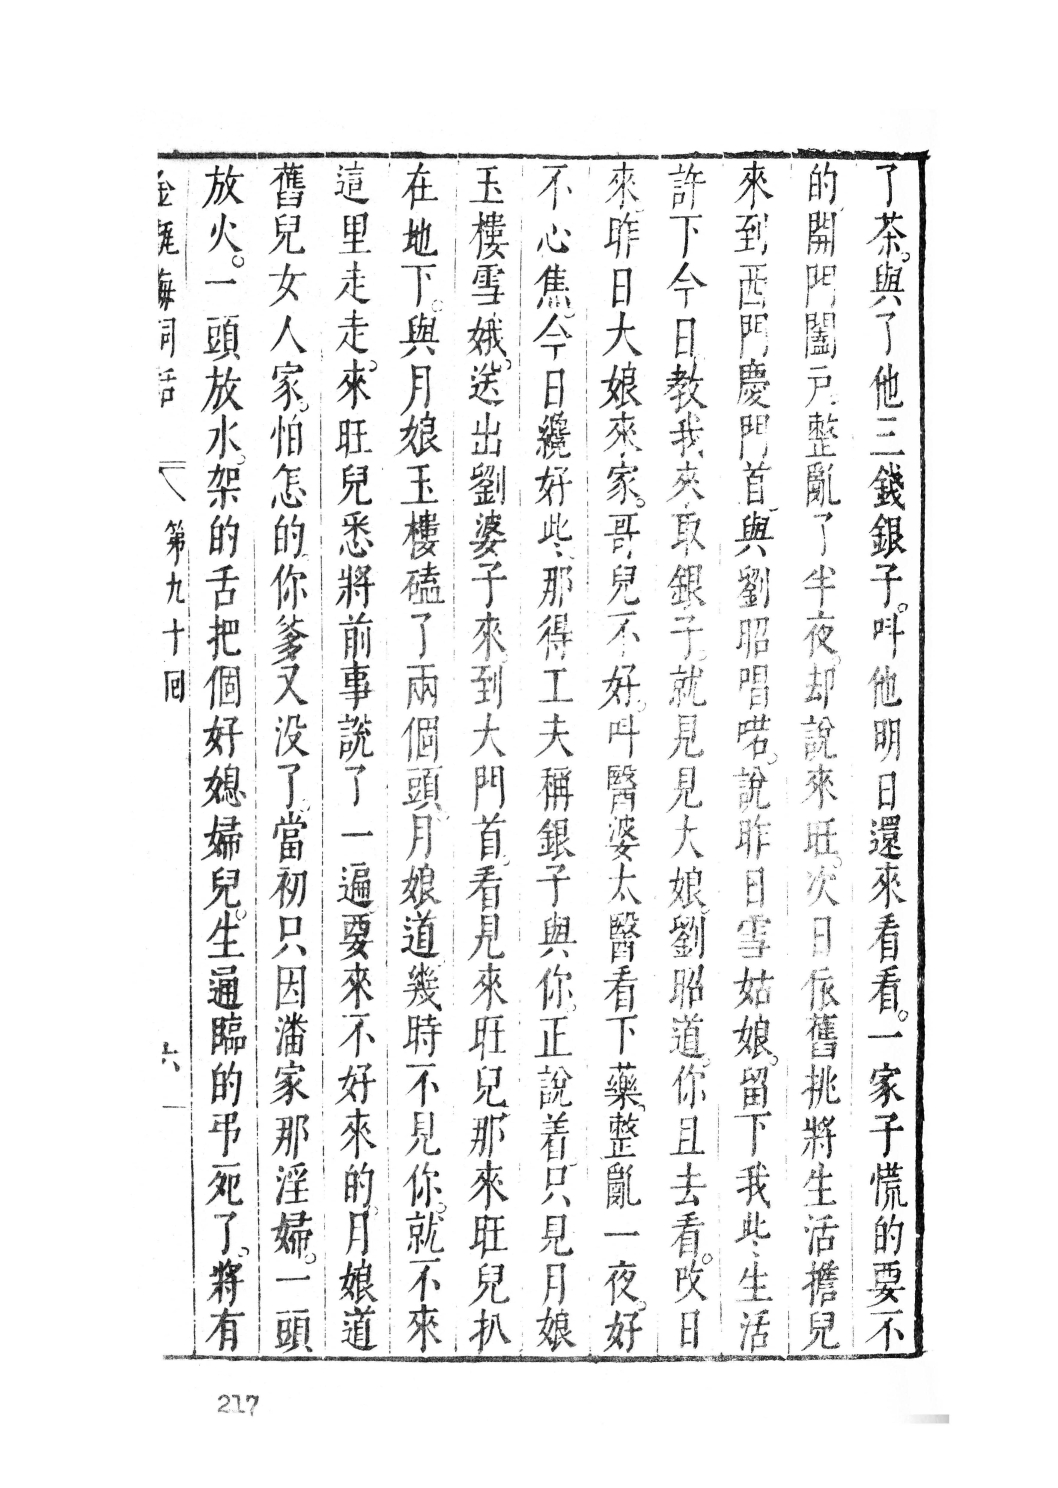 了茶。與了他三錢銀子。呌他明日還來看看。一家子慌的要不
的、開門闔戶、整亂了半夜。却說來旺。次日依舊挑將生活擔兒
來到西門慶門首、與劉昭唱喏。說昨日雪姑娘。留下我些生活
許下今日教我來取銀子。就見見大娘。劉昭道。你且去看。改日
來、昨日大娘來家。哥兒不好。呌醫婆太醫看下藥、整亂一夜。好
不心焦。今日纔好些、那得工夫稱銀子與你。正說着、只見月娘
玉樓雪娥。送出劉婆子來。到大門首、看見來旺兒、那來旺兒扒
在地下。與月娘玉樓磕了兩個頭、月娘道、幾時不見你。就不來
這里走走。來旺兒悉將前事說了一遍、要來不好來的。月娘道
舊兒女人家。怕怎的、你爹又没了、當初只因潘家那淫婦。一頭
放火。一頭放水。架的舌把個好媳婦兒。生逼臨的弔死了。將有
金瓶梅詞話 第九十回 六
217